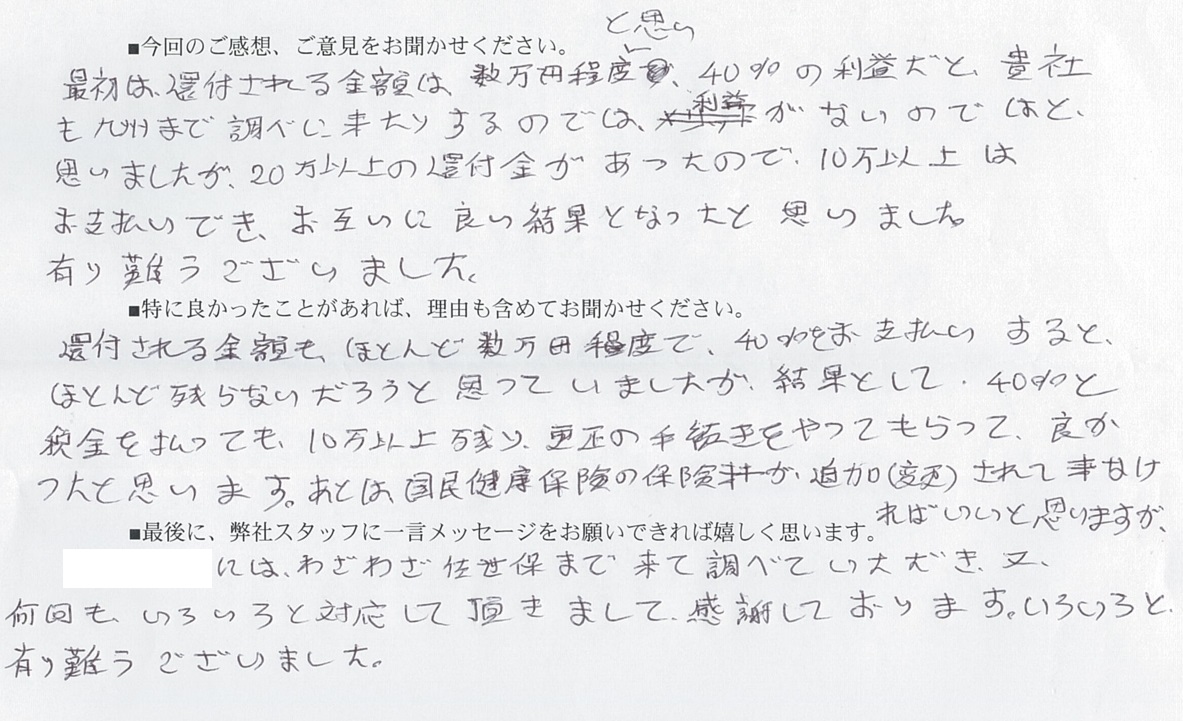 ■今回のご感想、ご意見をお聞かせください。
と思い
最初は、還付される金額は、数万円程度、40%の利益だと、貴社
も九州まで調べに来たりするのでは、利益がないのではと、
思いましたが、20万以上の還付金があったので、10万以上は
お支払いでき、お互いに良い結果となったと思いました。
有り難うございました。
■特に良かったことがあれば、理由も含めてお聞かせください。
還付される金額も、ほとんど数万円程度で、40%をお支払いすると、
ほとんど残らないだろうと思っていましたが、結果として、40%と
税金を払っても、10万以上残り、更正の手続きをやってもらって、良か
ったと思います。あとは国民健康保険の保険料が追加(変更)されて来なけ
ればいいと思いますが、
■最後に、弊社スタッフに一言メッセージをお願いできれば嬉しく思います。
には、わざわざ佐世保まで来て調べていただき、又、
何回も、いろいろと対応して頂きまして、感謝しております。いろいろと、
有り難うございました。